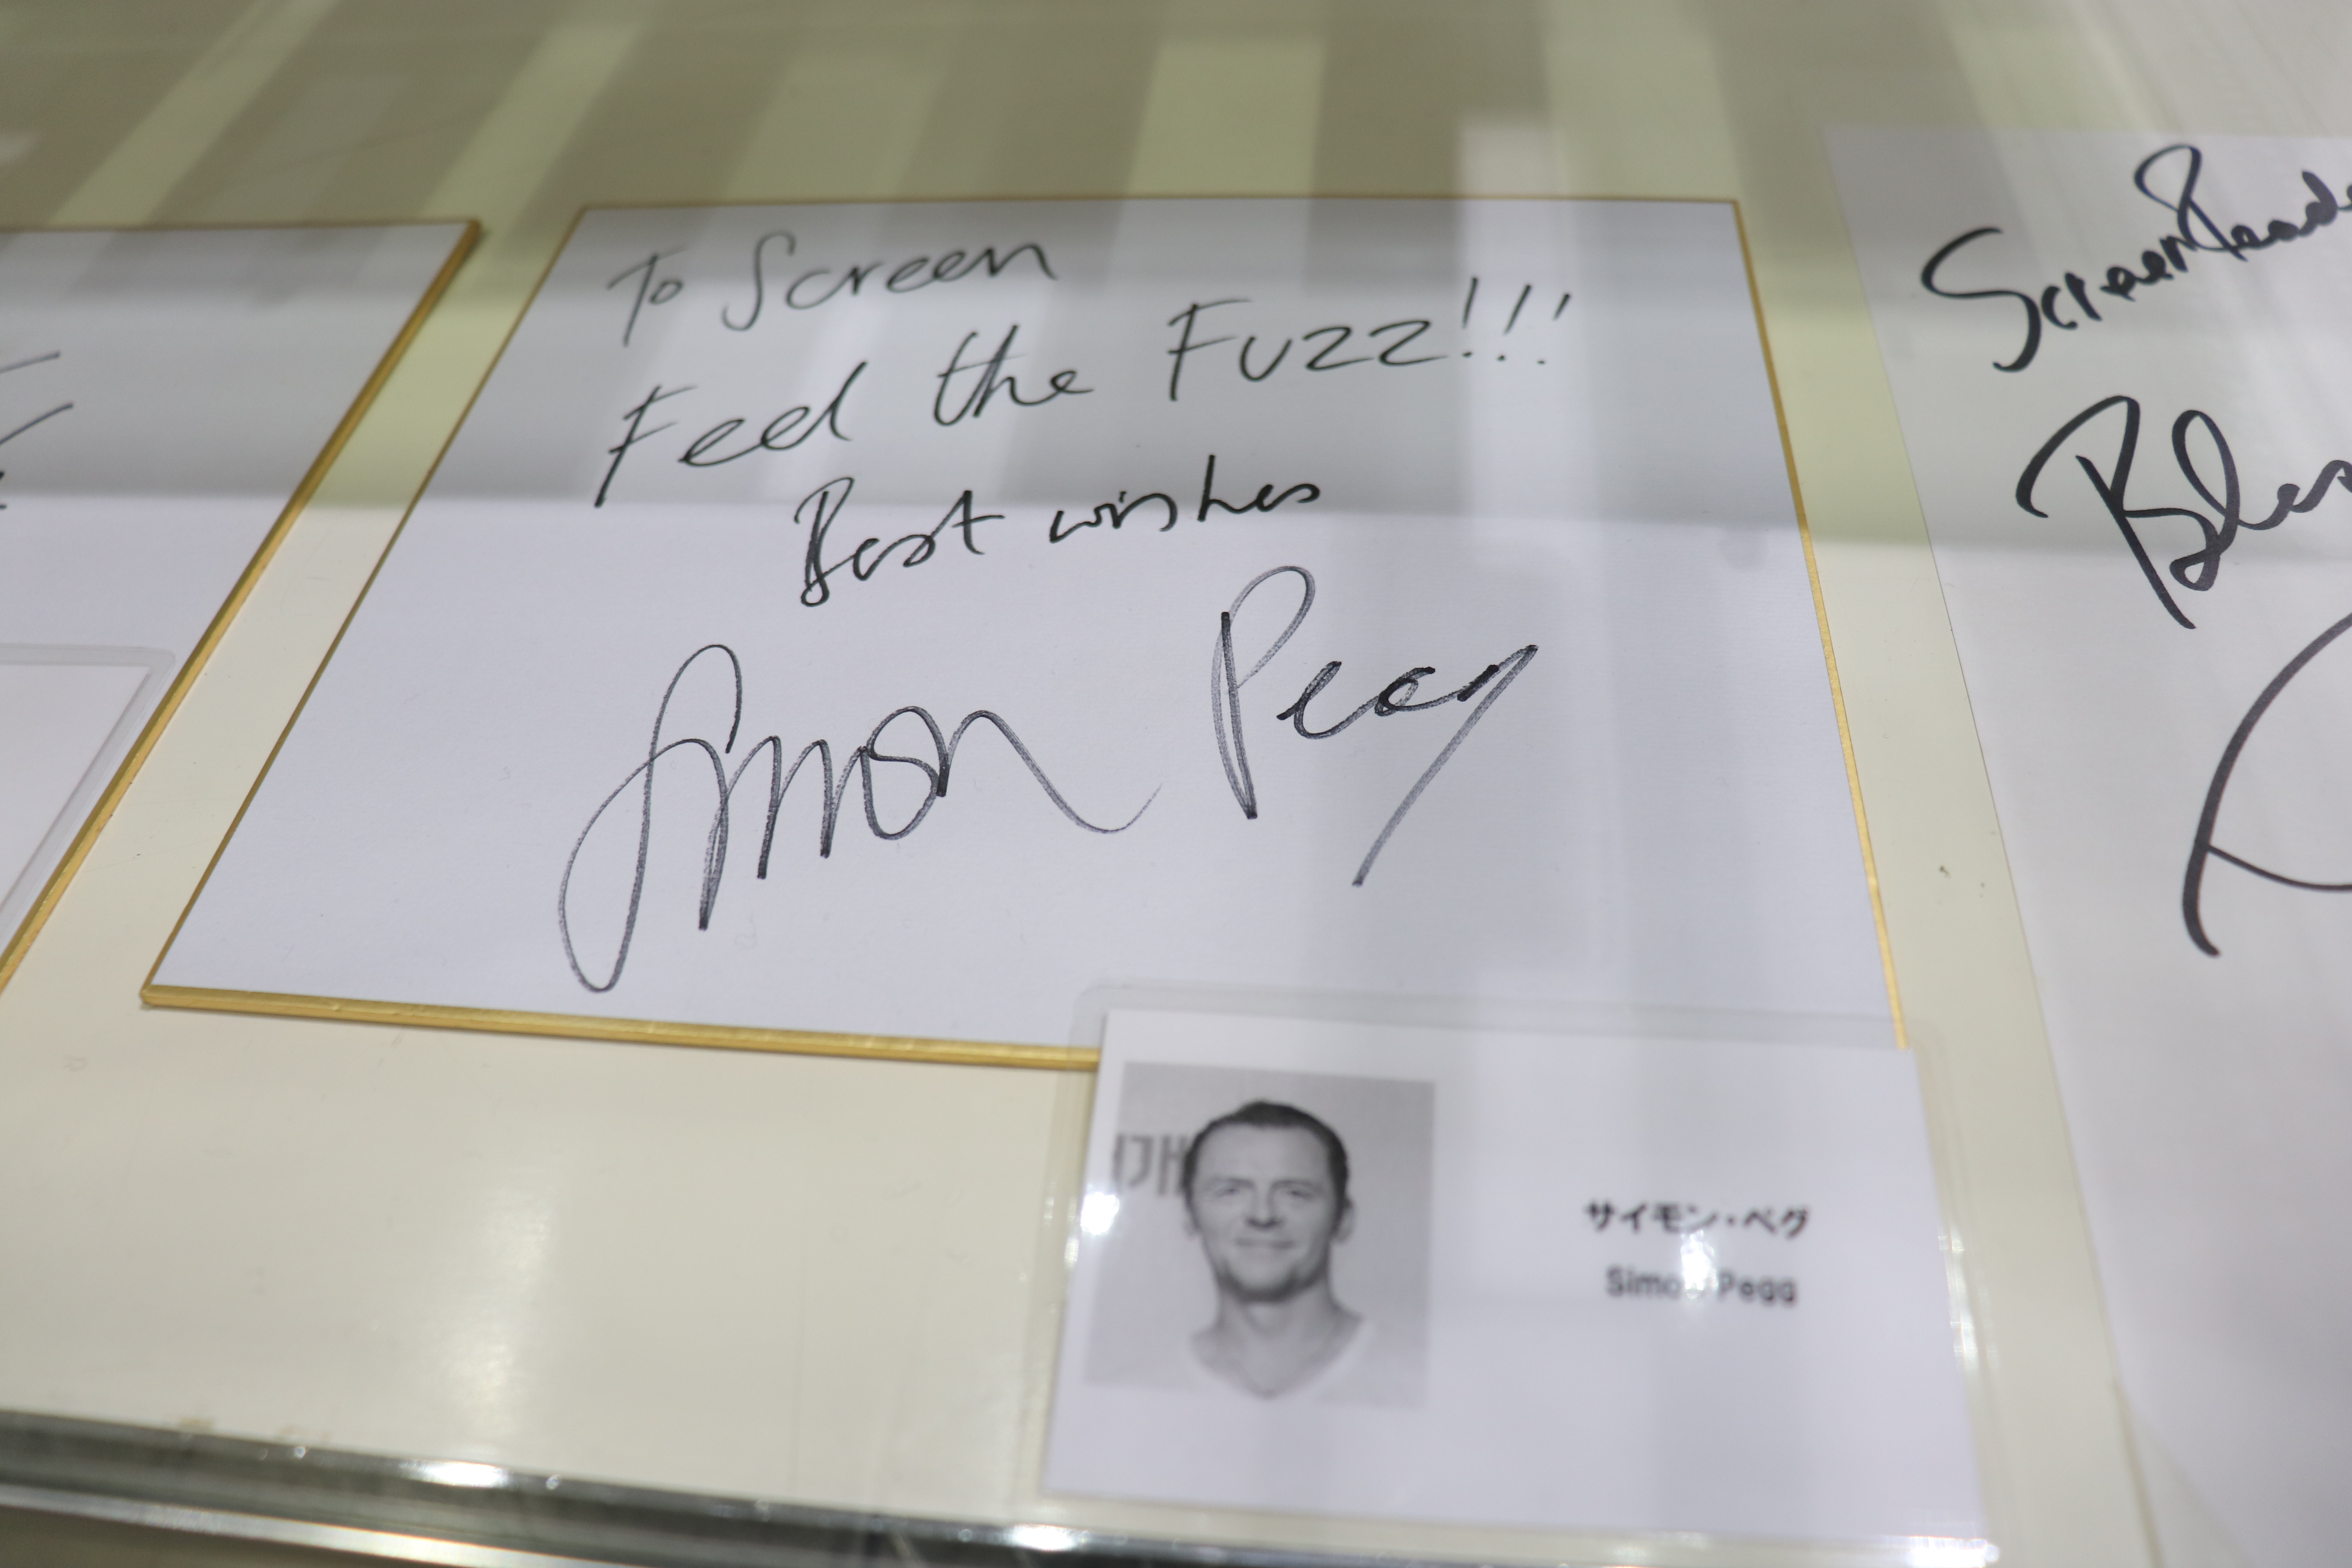 To Screen
Feel the Fuzz!!!
Best wishes
Simon Pegg
サイモン・ペグ
Simon Pegg
Screen